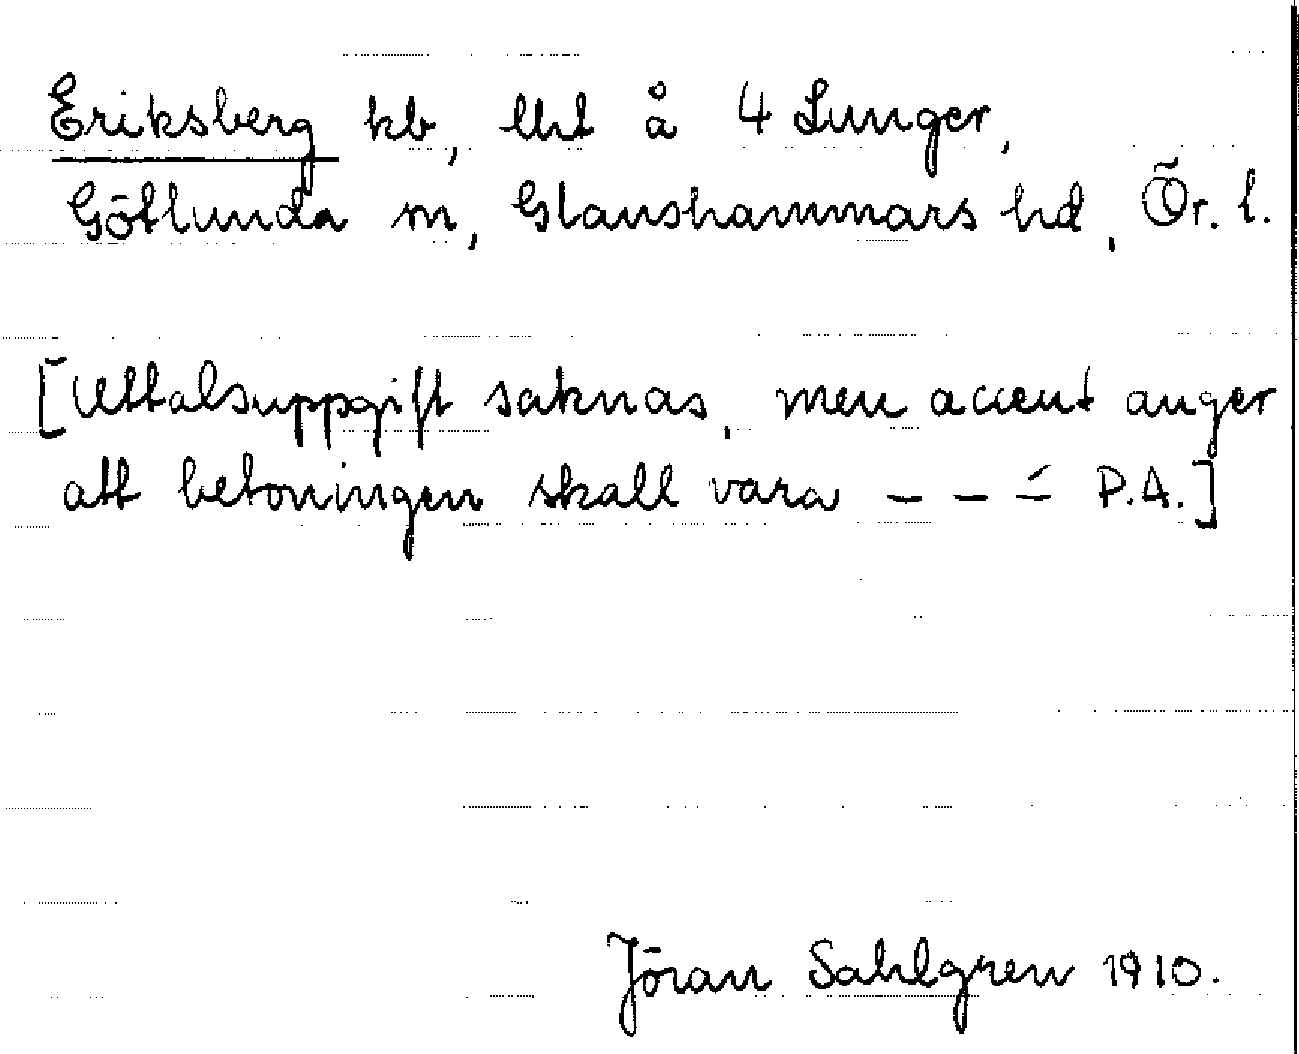 Eriksberg kb, lht å 4 Lunger,
Götlunda sn, Glanshammars hd, Ör. l.
[Uttalsuppgift saknas, men accent anger
att betoningen skall vara – – –́ P.A.]
Jöran Sahlgren 1910.